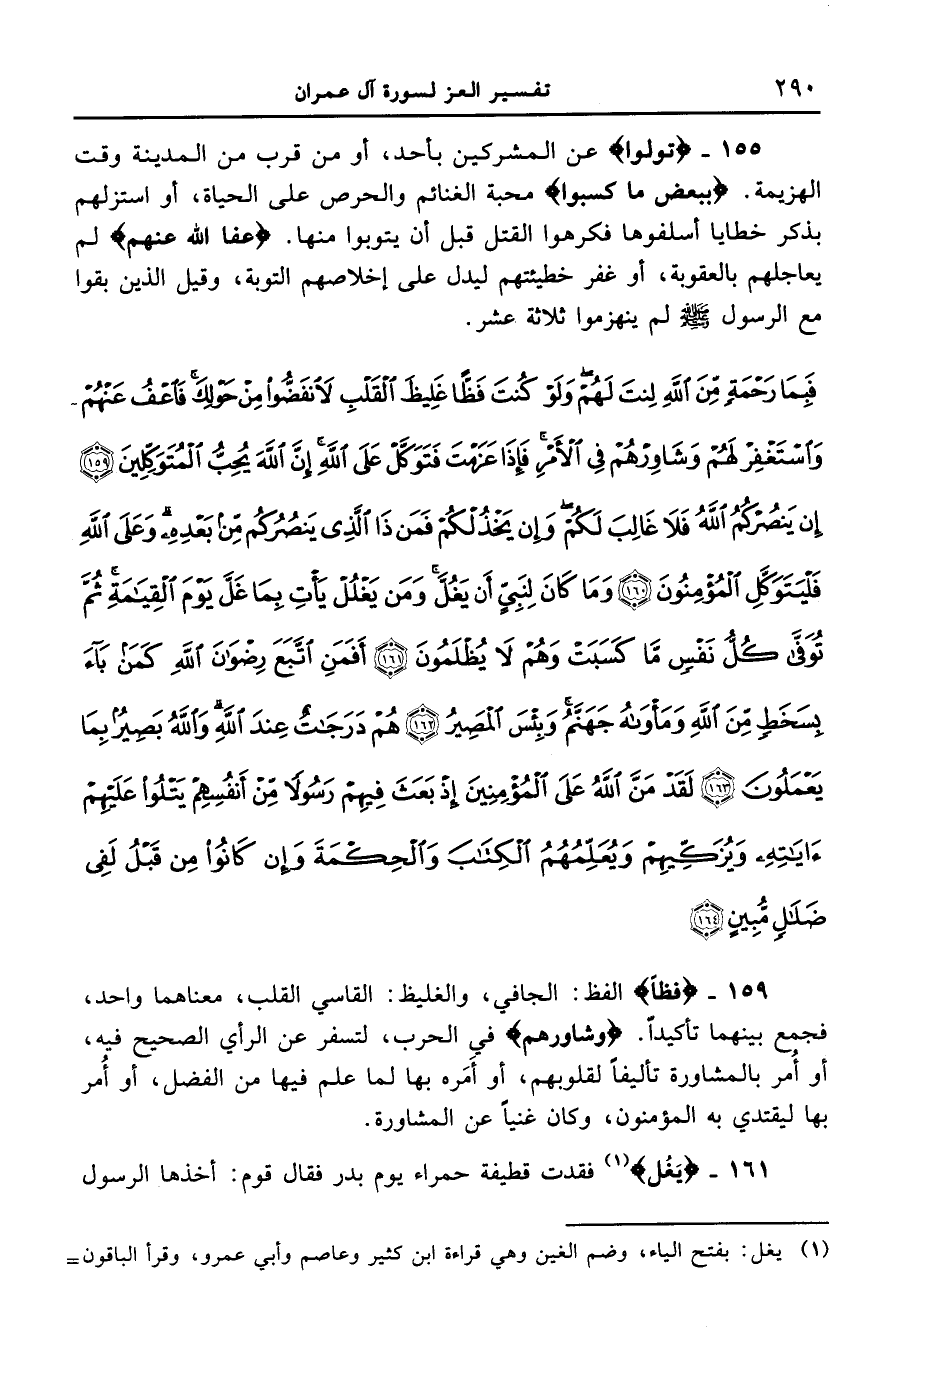 ٢٩٠ تفسير العز لسورة آل عمران
١٥٥ ـ ﴿تولوا﴾ عن المشركين بأحد، أو من قرب من المدينة وقت
الهزيمة. ﴿ببعض ما كسبوا﴾ محبة الغنائم والحرص على الحياة، أو استزلهم
بذكر خطايا أسلفوها فكرهوا القتل قبل أن يتوبوا منها. ﴿عفا الله عنهم﴾ لم
يعاجلهم بالعقوبة، أو غفر خطيئتهم ليدل على إخلاصهم التوبة، وقيل الذين بقوا
مع الرسول ﷺ لم ينهزموا ثلاثة عشر.
فَبِمَا رَحْمَةٍ مِّنَ ٱللَّهِ لِنتَ لَهُمْ ۖ وَلَوْ كُنتَ فَظًّا غَلِيظَ ٱلْقَلْبِ لَٱنفَضُّوا۟ مِنْ حَوْلِكَ ۖ فَٱعْفُ عَنْهُمْ
وَٱسْتَغْفِرْ لَهُمْ وَشَاوِرْهُمْ فِى ٱلْأَمْرِ ۖ فَإِذَا عَزَمْتَ فَتَوَكَّلْ عَلَى ٱللَّهِ ۚ إِنَّ ٱللَّهَ يُحِبُّ ٱلْمُتَوَكِّلِينَ ١٥٩
إِن يَنصُرْكُمُ ٱللَّهُ فَلَا غَالِبَ لَكُمْ ۖ وَإِن يَخْذُلْكُمْ فَمَن ذَا ٱلَّذِى يَنصُرُكُم مِّنۢ بَعْدِهِۦ ۗ وَعَلَى ٱللَّهِ
فَلْيَتَوَكَّلِ ٱلْمُؤْمِنُونَ ١٦٠ وَمَا كَانَ لِنَبِىٍّ أَن يَغُلَّ ۚ وَمَن يَغْلُلْ يَأْتِ بِمَا غَلَّ يَوْمَ ٱلْقِيَـٰمَةِ ۚ ثُمَّ
تُوَفَّىٰ كُلُّ نَفْسٍ مَّا كَسَبَتْ وَهُمْ لَا يُظْلَمُونَ ١٦١ أَفَمَنِ ٱتَّبَعَ رِضْوَٰنَ ٱللَّهِ كَمَنۢ بَآءَ
بِسَخَطٍ مِّنَ ٱللَّهِ وَمَأْوَىٰهُ جَهَنَّمُ ۚ وَبِئْسَ ٱلْمَصِيرُ ١٦٢ هُمْ دَرَجَـٰتٌ عِندَ ٱللَّهِ ۗ وَٱللَّهُ بَصِيرٌۢ بِمَا
يَعْمَلُونَ ١٦٣ لَقَدْ مَنَّ ٱللَّهُ عَلَى ٱلْمُؤْمِنِينَ إِذْ بَعَثَ فِيهِمْ رَسُولًا مِّنْ أَنفُسِهِمْ يَتْلُوا۟ عَلَيْهِمْ
ءَايَـٰتِهِۦ وَيُزَكِّيهِمْ وَيُعَلِّمُهُمُ ٱلْكِتَـٰبَ وَٱلْحِكْمَةَ وَإِن كَانُوا۟ مِن قَبْلُ لَفِى
ضَلَـٰلٍ مُّبِينٍ ١٦٤
١٥٩ ـ ﴿فظاً﴾ الفظ: الجافي، والغليظ: القاسي القلب، معناهما واحد،
فجمع بينهما تأكيداً. ﴿وشاورهم﴾ في الحرب، لتسفر عن الرأي الصحيح فيه،
أو أُمر بالمشاورة تأليفاً لقلوبهم، أو أَمَره بها لما علم فيها من الفضل، أو أُمر
بها ليقتدي به المؤمنون، وكان غنياً عن المشاورة.
١٦١ ـ ﴿يَغُل﴾(١) فقدت قطيفة حمراء يوم بدر فقال قوم: أخذها الرسول
(١) يغل: بفتح الياء، وضم الغين وهي قراءة ابن كثير وعاصم وأبي عمرو، وقرأ الباقون=